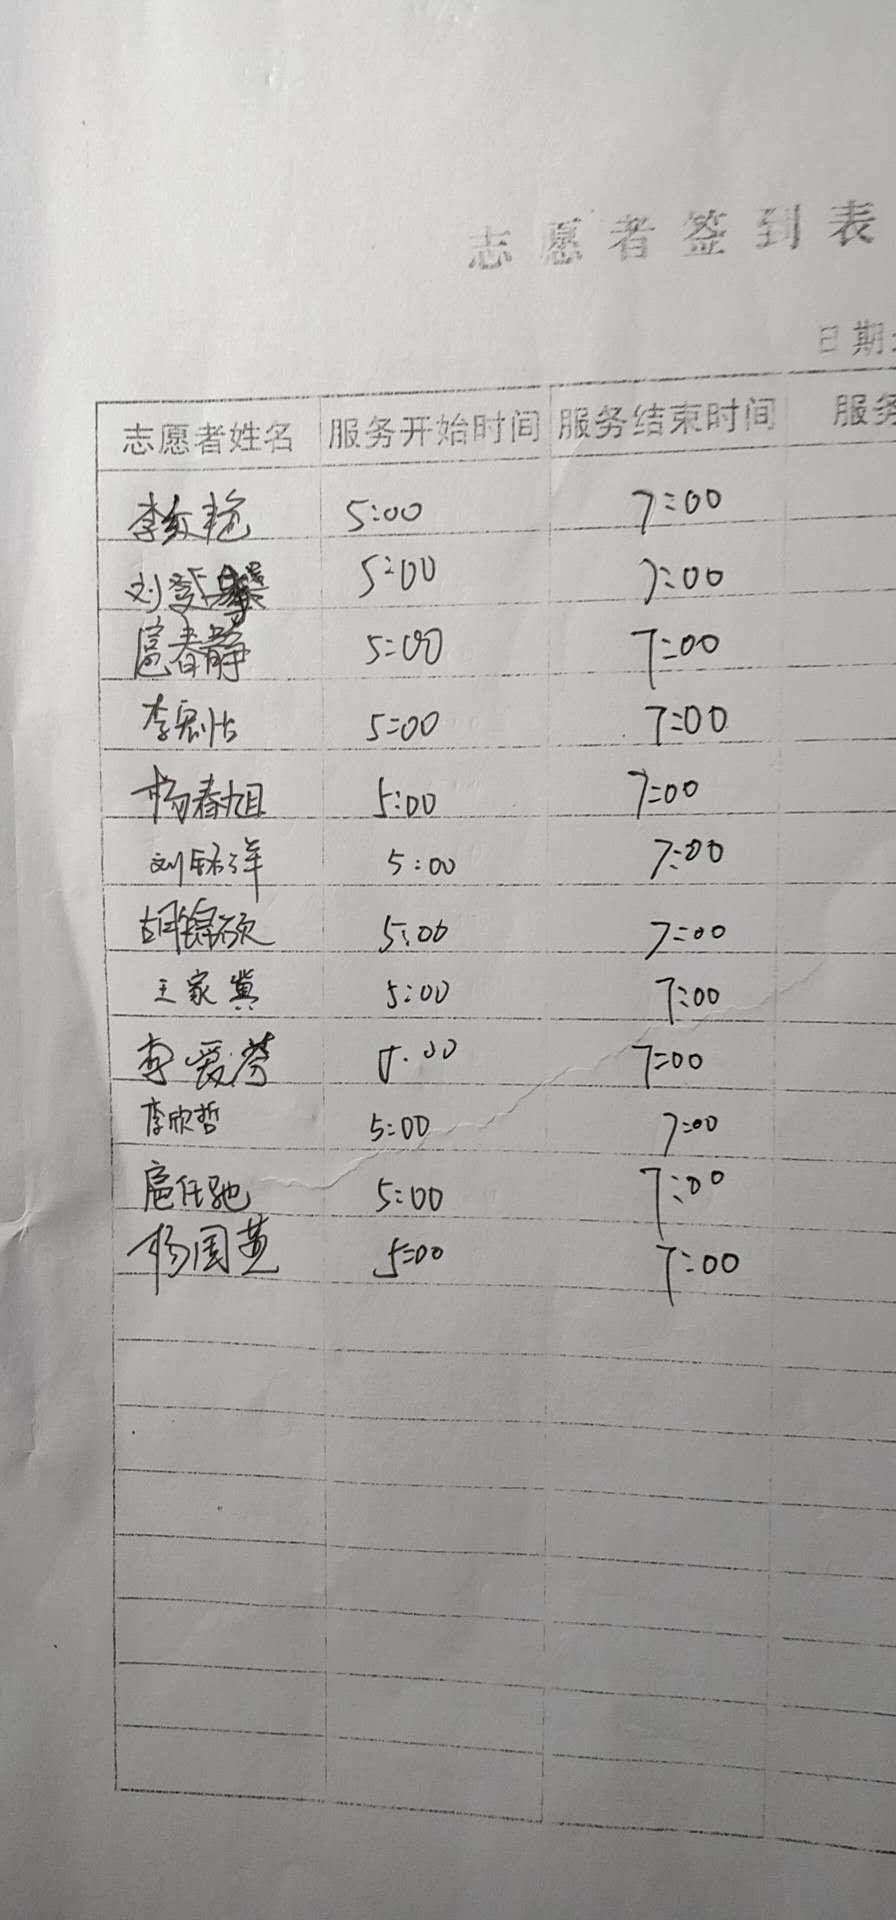 志愿者签到表
日期:
志愿者姓名 服务开始时间 服务结束时间 服务
李红艳 5:00 7:00
刘 5:00 7:00
扈春静 5:00 7:00
李 5:00 7:00
杨春旭 5:00 7:00
刘钰洋 5:00 7:00
胡锦硕 5:00 7:00
王家冀 5:00 7:00
李爱芬 5:00 7:00
李欣哲 5:00 7:00
扈任驰 5:00 7:00
杨国英 5:00 7:00